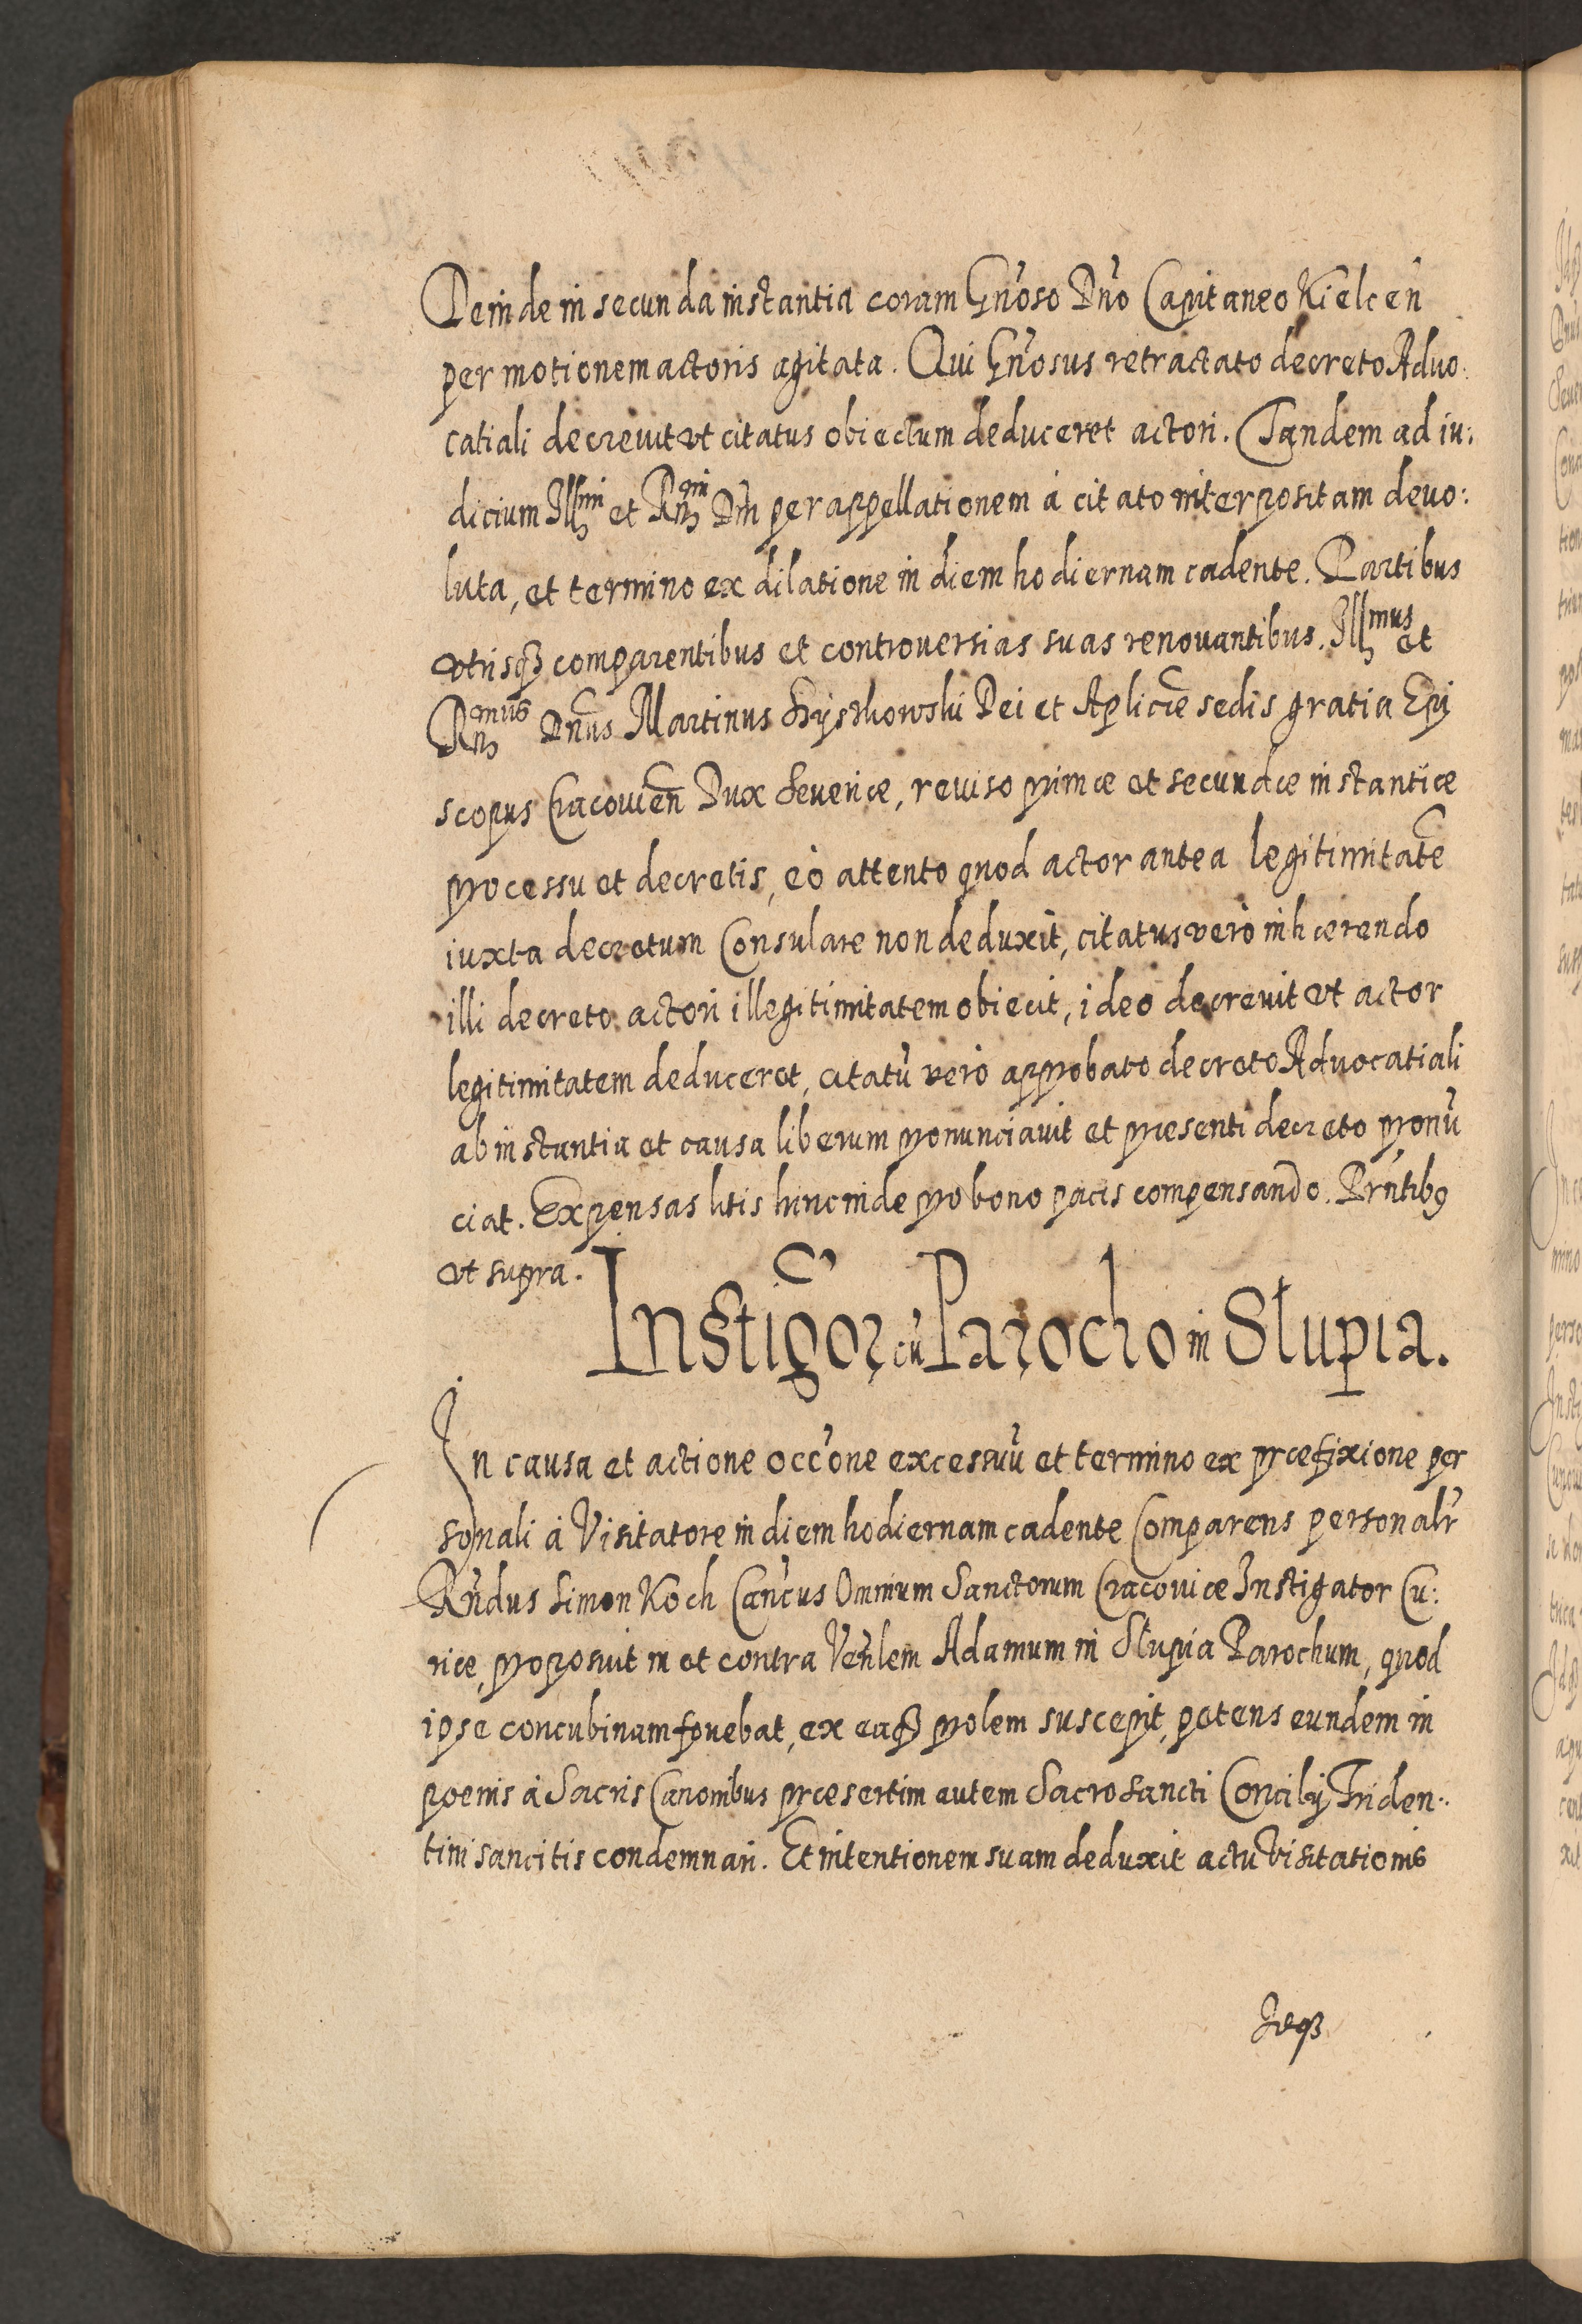 Deinde in secunda instantia coram Gn̄oso Dn̄o Capitaneo Kielcen̄
per motionem actoris agitata. Qui Gn̄osus retractato decreto Aduo:
catiali decreuit vt citatus obiectum deduceret actori. Tandem ad iu:
dicium Illmi et Rndmi Dn̄i per appellationem à citato interpositam deuo:
luta, et termino ex dilatione in diem hodiernam cadente. Partibus
vtrisqꝫ comparentibus et controuersias suas renouantibus. Illmus et
Rndmus Dn̄us Martinus Szyszkowski Dei et Aplicæ sedis gratia Epi
scopus Cracouien̄ Dux Seueriæ, reuiso primæ et secundæ instantiæ
processu et decretis, eò attento quod actor antea legitimitatē
iuxta decretum Consulare non deduxit, citatus verò inhærendo
illi decreto actori illegitimitatem obiecit, ideo decreuit vt actor
legitimitatem deduceret, citatū verò approbato decreto Aduocatiali
ab instantia et causa liberum pronunciauit et præsenti decreto pronū
ciat. Expensas litis hinc inde pro bono pacis compensando. Prn̄tibꝯ
vt supra.
Instigor cū Parocho in Slupia.
In causa et actione occōne excessuū et termino ex præfixione per
sonali à Visitatore in diem hodiernam cadente Comparens personalr̄
Rn̄dus Simon Koch Can̄cus Omnium Sanctorum Cracouiæ Instigator Cu:
riæ, proposuit in et contra Ven̄lem Adamum in Slupia Parochum, quod
ipse concubinam fouebat, ex eaqꝫ prolem suscepit, petens eundem in
poenis à Sacris Canonibus præsertim autem Sacrosancti Concilij Triden:
tini sancitis condemnari. Et intentionem suam deduxit actu visitationis